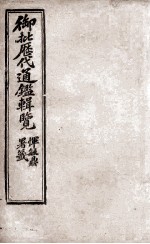 御批歷代通鑑輯覽
署籤